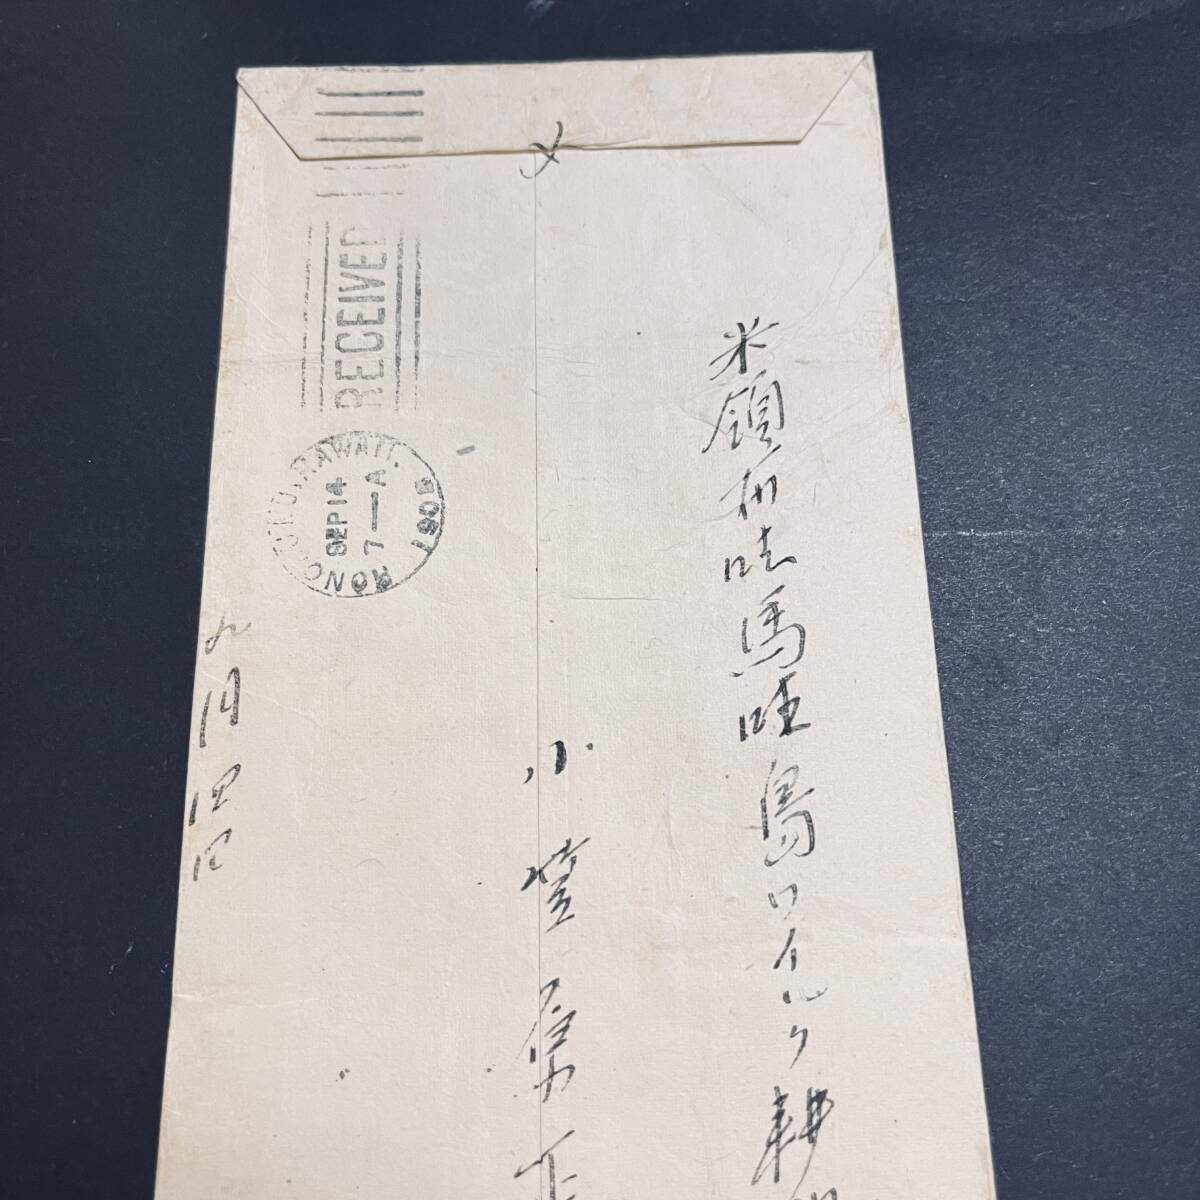 〆
米領布哇馬哇島ワイルク耕
小
九月四日
RECEIVED
HONOLULU, HAWAII.
SEP 14
7 — A
1908